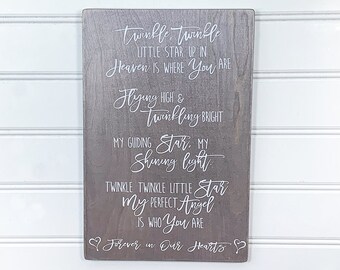 Twinkle Twinkle
LITTLE STAR UP IN
Heaven IS WHERE You ARE
Flying HIGH &
Twinkling BRIGHT
MY GUIDING Star, MY
Shining light
TWINKLE TWINKLE LITTLE Star
My PERFECT Angel
IS WHO You ARE
Forever in Our Hearts